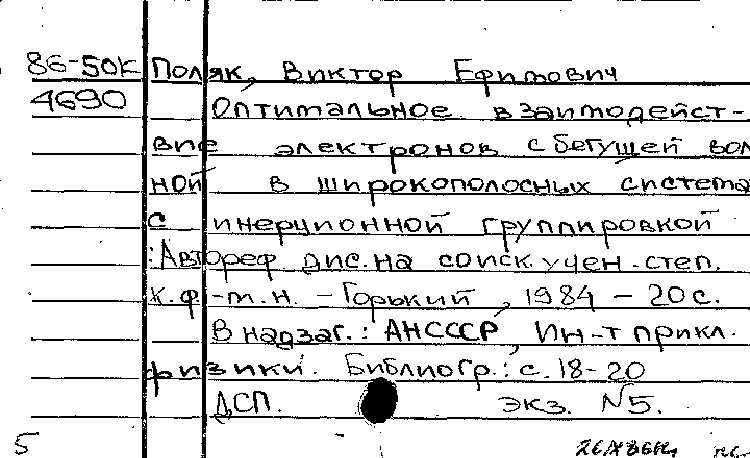 86-50К Поляк, Виктор Ефимович
4690 Оптимальное взаимодейст-
вие электронов с бегущей вол
ной в широкополосных система
с инерционной группировкой
: Автореф дис. на соиск. учен. степ.
к. ф.-м. н. - Горький, 1984 - 20 с.
В надзаг.: АНСССР, Ин-т прикл.
физики. Библиогр.: с. 18-20
ДСП. экз. N5.
5